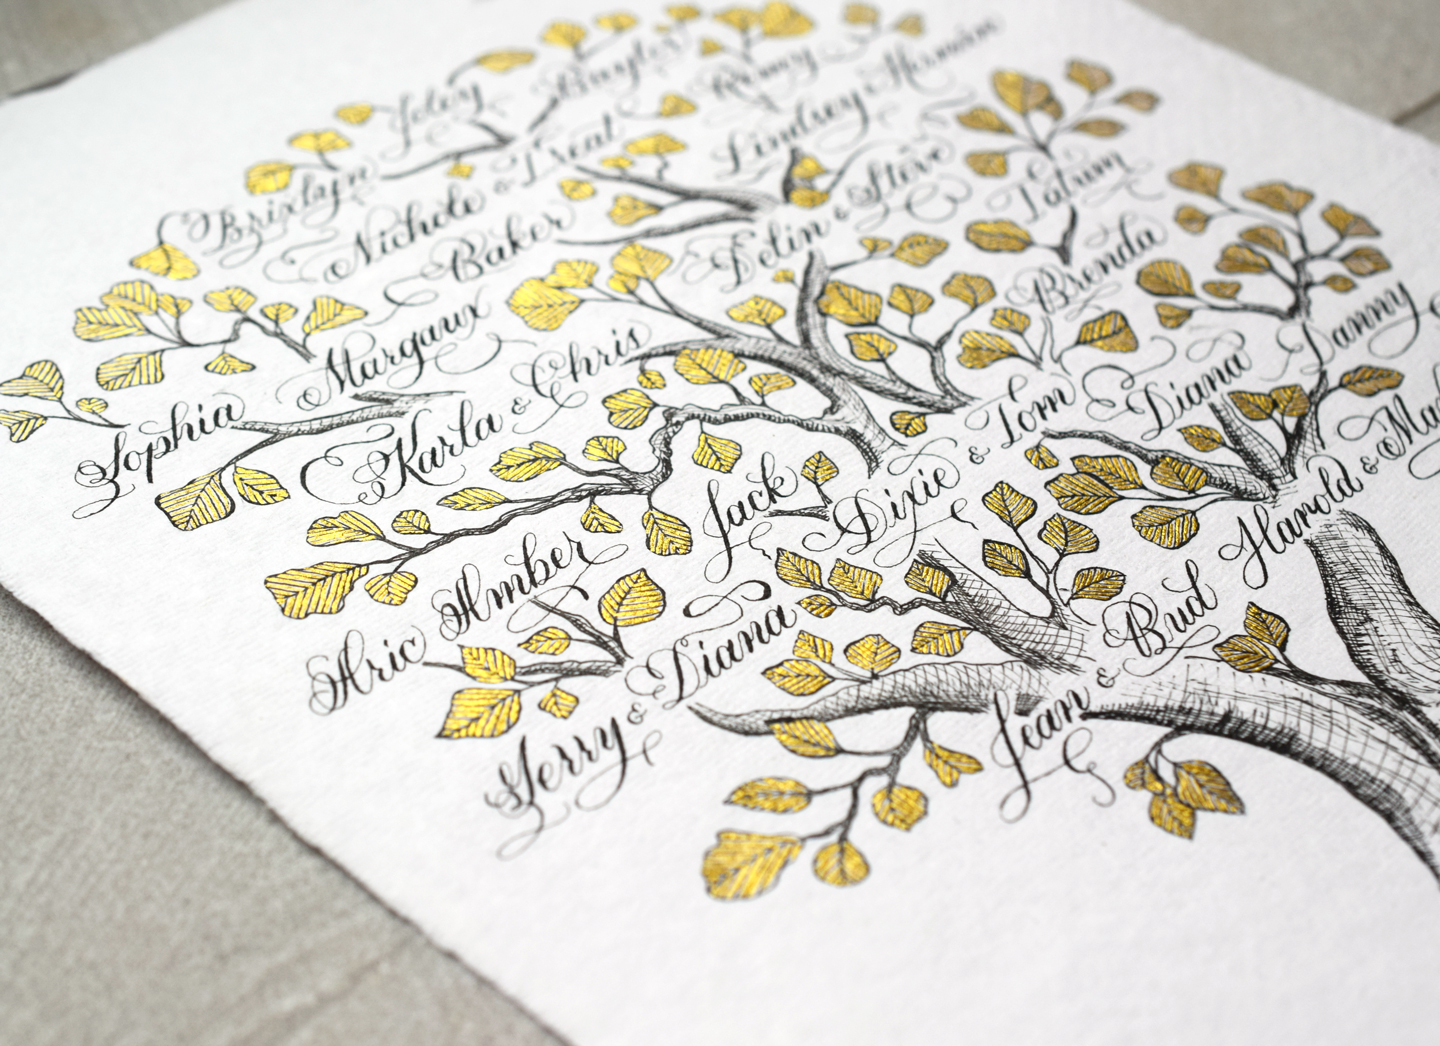 Joley
Lindsey &
Brixlyn
Nichole & Treat
Baker
Delin & Steve
Tatum
Brenda
Margaux
Sophia
Karla & Chris
Dixie & Tom
Diana
Danny
Jack
Amber
Aric
Harold &
Jerry & Diana
Jean & Bud